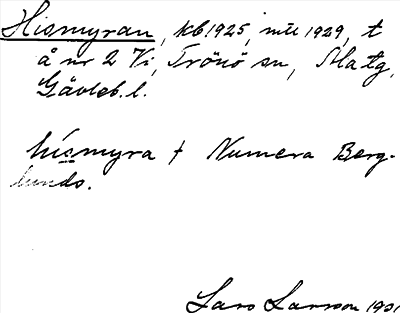 Hismyran, kb 1925, mtl 1929, t
å nr 2 Vi, Trönö sn, Ala tg,
Gävleb. l.
hísmyra † Numera Berg-
lunds.
Lars Larsson 1931